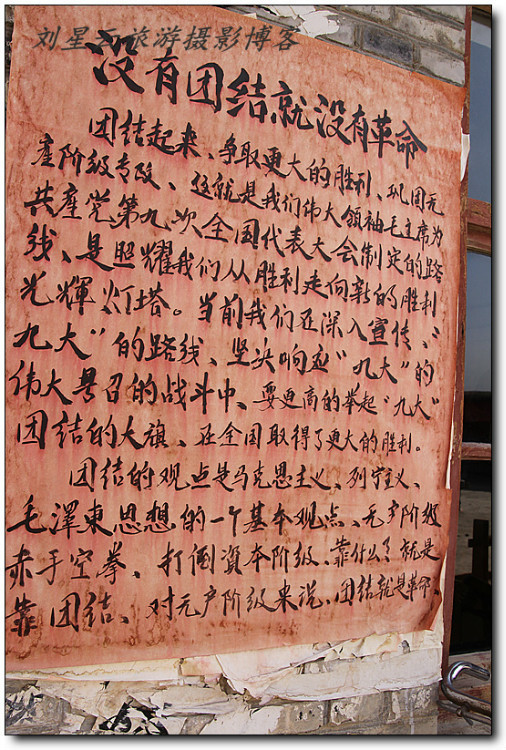 刘星云旅游摄影博客
没有团结就没有革命
团结起来、争取更大的胜利、巩固无
产阶级专政、这就是我们伟大领袖毛主席为
共產党第九次全国代表大会制定的路
线、是照耀我们从胜利走向新的胜利
光輝灯塔。当前我们正深入宣传、
九大"的路线、坚决响应"九大"的
伟大号召的战斗中、要更高的举起"九大"
团结的大旗、在全国取得了更大的胜利。
团结的观点是马克思主义、列宁主义、
毛澤東思想的一个基本观点、无产阶级
赤手空拳、打倒資本阶级、靠什么?就是
靠团结、对无产阶级来说、团结就是革命、